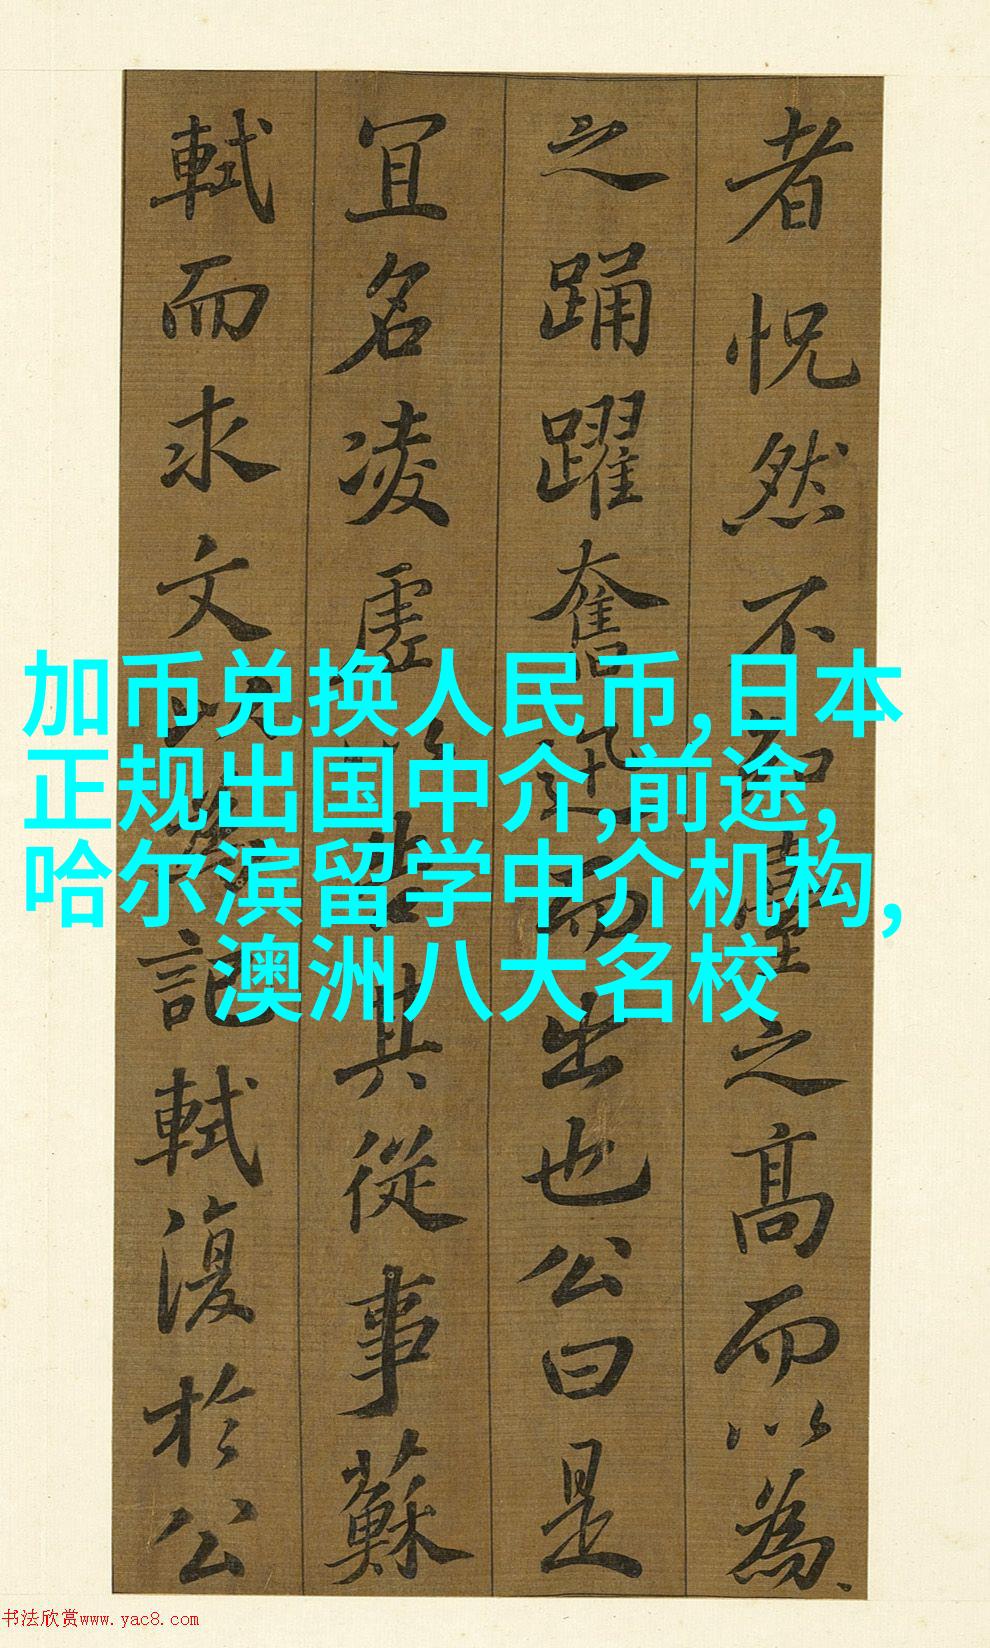 者怳然不知臺之高而以為
之踊躍奮迅而出也公曰是
宜名凌虛以告其從事蘇
軾而求文以為記軾復於公
加币兑换人民币,日本
正规出国中介,前途,
哈尔滨留学中介机构,
澳洲八大名校
书法欣赏www.yac8.com